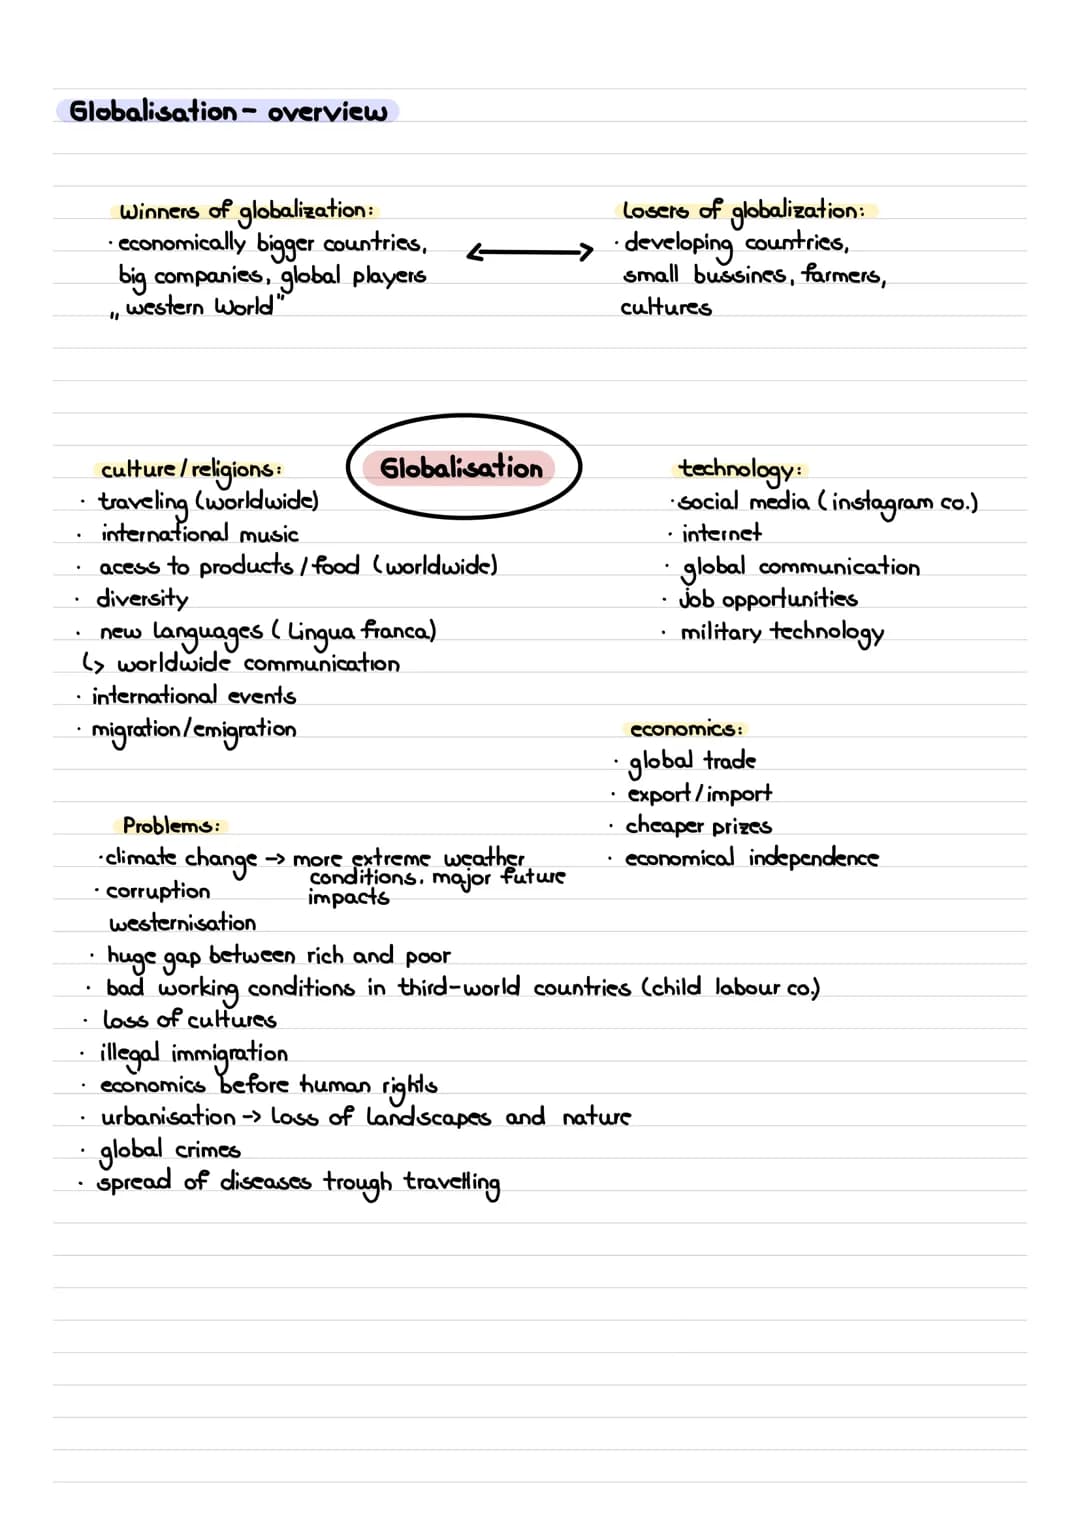 Globalisation - overview
Winners of globalization:
· economically bigger countries,
big companies, global players
„ western World"
Losers of globalization:
· developing countries,
small bussines, farmers,
cultures
Globalisation
culture / religions:
· traveling (worldwide)
· international music
· acess to products / food (worldwide)
· diversity
· new languages ( Lingua franca)
↳ worldwide communication
· international events
· migration/emigration
technology:
· social media ( instagram co.)
· internet
· global communication
· job opportunities
· military technology
economics:
· global trade
· export / import
· cheaper prizes
· economical independence
Problems:
· climate change → more extreme weather
conditions, major future
impacts
· corruption
westernisation
· huge gap between rich and poor
· bad working conditions in third-world countries (child labour co.)
· loss of cultures
· illegal immigration
· economics before human rights
· urbanisation → loss of landscapes and nature
· global crimes
· spread of diseases trough travelling